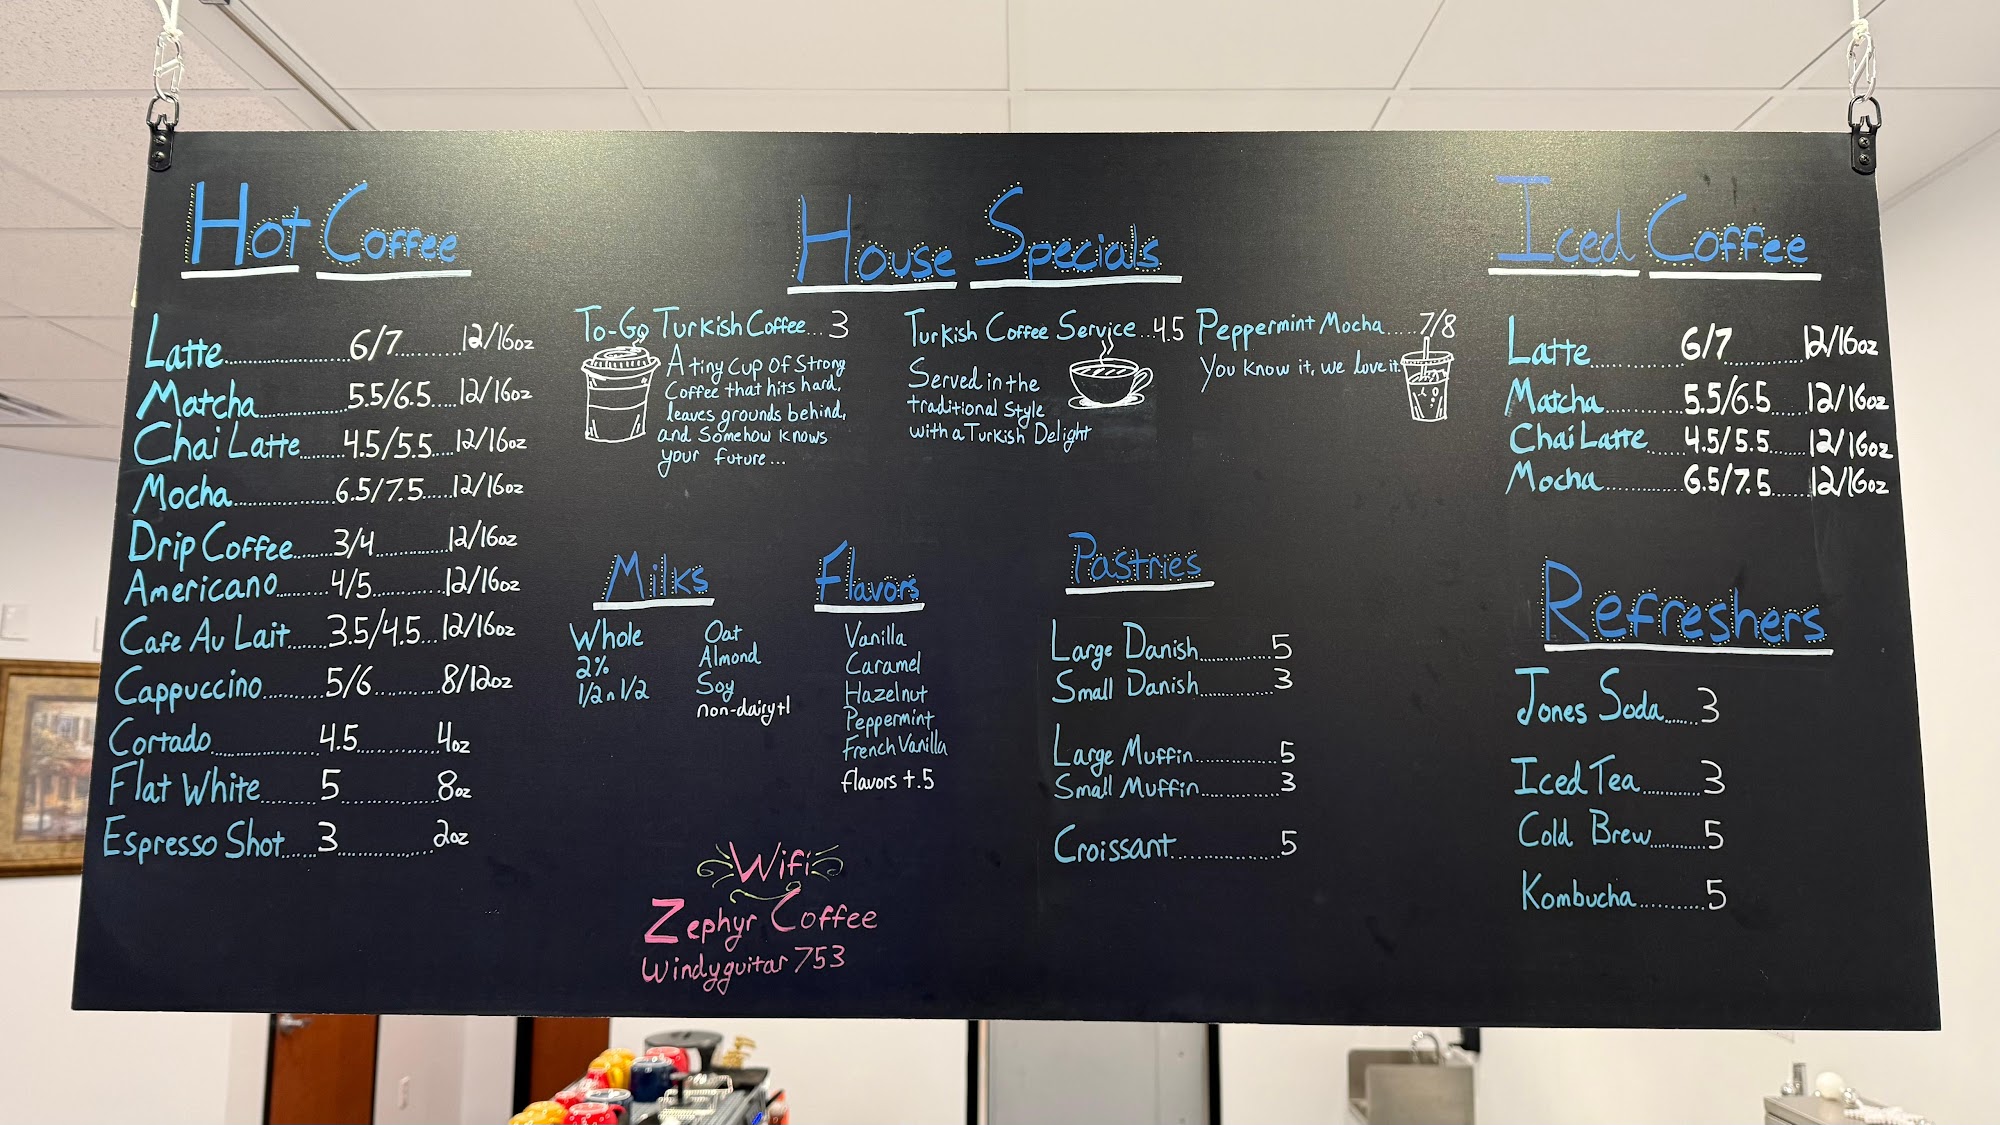 Hot Coffee
Latte..........6/7..........12/16oz
Matcha..........5.5/6.5.....12/16oz
Chai Latte........4.5/5.5....12/16oz
Mocha..........6.5/7.5.....12/16oz
Drip Coffee.......3/4..........12/16oz
Americano........4/5..........12/16oz
Cafe Au Lait.......3.5/4.5...12/16oz
Cappuccino........5/6.........8/12oz
Cortado..........4.5..........4oz
Flat White........5..........8oz
Espresso Shot.....3..........2oz
House Specials
To-Go Turkish Coffee...3
A tiny cup of strong
coffee that hits hard,
leaves grounds behind,
and somehow knows
your future...
Turkish Coffee Service...4.5
Served in the
traditional style
with a Turkish Delight
Peppermint Mocha.....7/8
You know it, we love it.
Milks
Whole
2%
1/2 n 1/2
Oat
Almond
Soy
non-dairy +1
Flavors
Vanilla
Caramel
Hazelnut
Peppermint
French Vanilla
flavors +.5
Pastries
Large Danish..........5
Small Danish..........3
Large Muffin..........5
Small Muffin..........3
Croissant..........5
Wifi
Zephyr Coffee
Windyguitar753
Iced Coffee
Latte..........6/7..........12/16oz
Matcha..........5.5/6.5......12/16oz
Chai Latte......4.5/5.5......12/16oz
Mocha..........6.5/7.5......12/16oz
Refreshers
Jones Soda.....3
Iced Tea..........3
Cold Brew..........5
Kombucha..........5